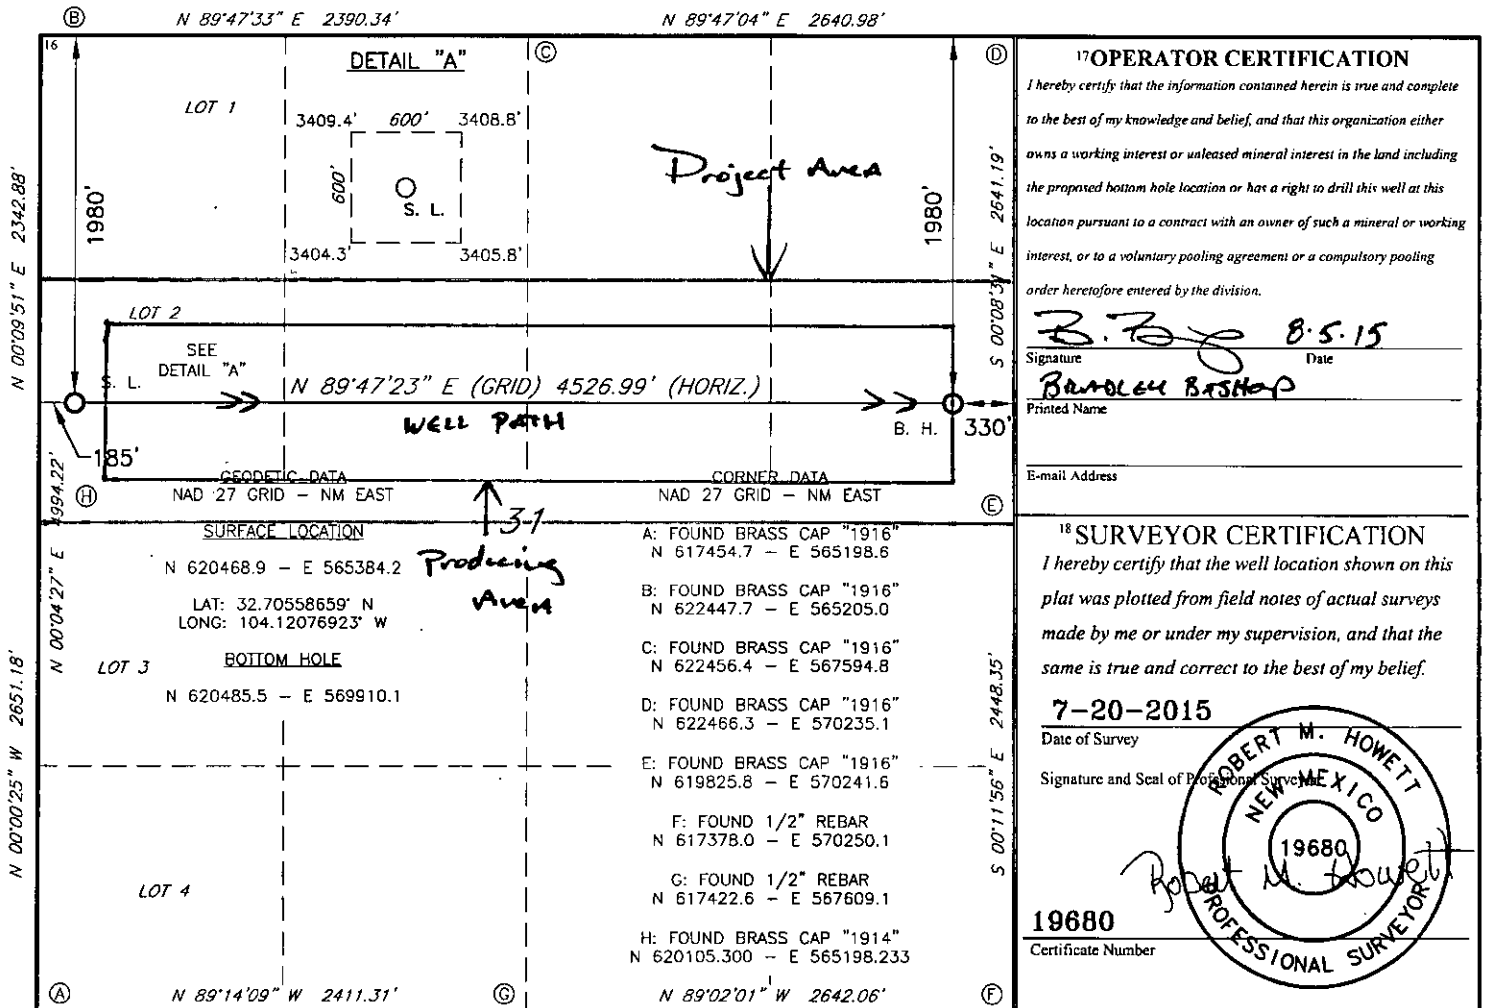 Ⓑ N 89°47'33" E 2390.34' N 89°47'04" E 2640.98'
16
DETAIL "A"
Ⓒ
Ⓓ
LOT 1
3409.4' 600' 3408.8'
600'
S. L.
3404.3' 3405.8'
Project Area
N 00°09'51" E 2342.88'
1980'
1980'
S 00°08'31" E 2641.19'
LOT 2
SEE
DETAIL "A"
S. L.
N 89°47'23" E (GRID) 4526.99' (HORIZ.)
WELL PATH
B. H.
330'
185'
Ⓗ
Ⓔ
GEODETIC DATA
NAD 27 GRID – NM EAST
SURFACE LOCATION
N 620468.9 – E 565384.2
LAT: 32.70558659° N
LONG: 104.12076923° W
BOTTOM HOLE
N 620485.5 – E 569910.1
31
Producing
Area
CORNER DATA
NAD 27 GRID – NM EAST
A: FOUND BRASS CAP "1916"
N 617454.7 – E 565198.6
B: FOUND BRASS CAP "1916"
N 622447.7 – E 565205.0
C: FOUND BRASS CAP "1916"
N 622456.4 – E 567594.8
D: FOUND BRASS CAP "1916"
N 622466.3 – E 570235.1
E: FOUND BRASS CAP "1916"
N 619825.8 – E 570241.6
F: FOUND 1/2" REBAR
N 617378.0 – E 570250.1
G: FOUND 1/2" REBAR
N 617422.6 – E 567609.1
H: FOUND BRASS CAP "1914"
N 620105.300 – E 565198.233
N 00°04'27" E 4994.22'
N 00°00'25" W 2651.18'
LOT 3
LOT 4
S 00°11'56" E 2448.35'
Ⓐ N 89°14'09" W 2411.31' Ⓖ N 89°02'01" W 2642.06' Ⓕ
17 OPERATOR CERTIFICATION
I hereby certify that the information contained herein is true and complete
to the best of my knowledge and belief, and that this organization either
owns a working interest or unleased mineral interest in the land including
the proposed bottom hole location or has a right to drill this well at this
location pursuant to a contract with an owner of such a mineral or working
interest, or to a voluntary pooling agreement or a compulsory pooling
order heretofore entered by the division.
8.5.15
Signature Date
BRADLEY BISHOP
Printed Name
E-mail Address
18 SURVEYOR CERTIFICATION
I hereby certify that the well location shown on this
plat was plotted from field notes of actual surveys
made by me or under my supervision, and that the
same is true and correct to the best of my belief.
7-20-2015
Date of Survey
Signature and Seal of Professional Surveyor
ROBERT M. HOWETT
NEW MEXICO
19680
PROFESSIONAL SURVEYOR
Robert M. Howett
19680
Certificate Number